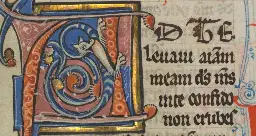 AD TE
leuaui aīam
meam dṡ mṡ
inte confido
non erubeſ